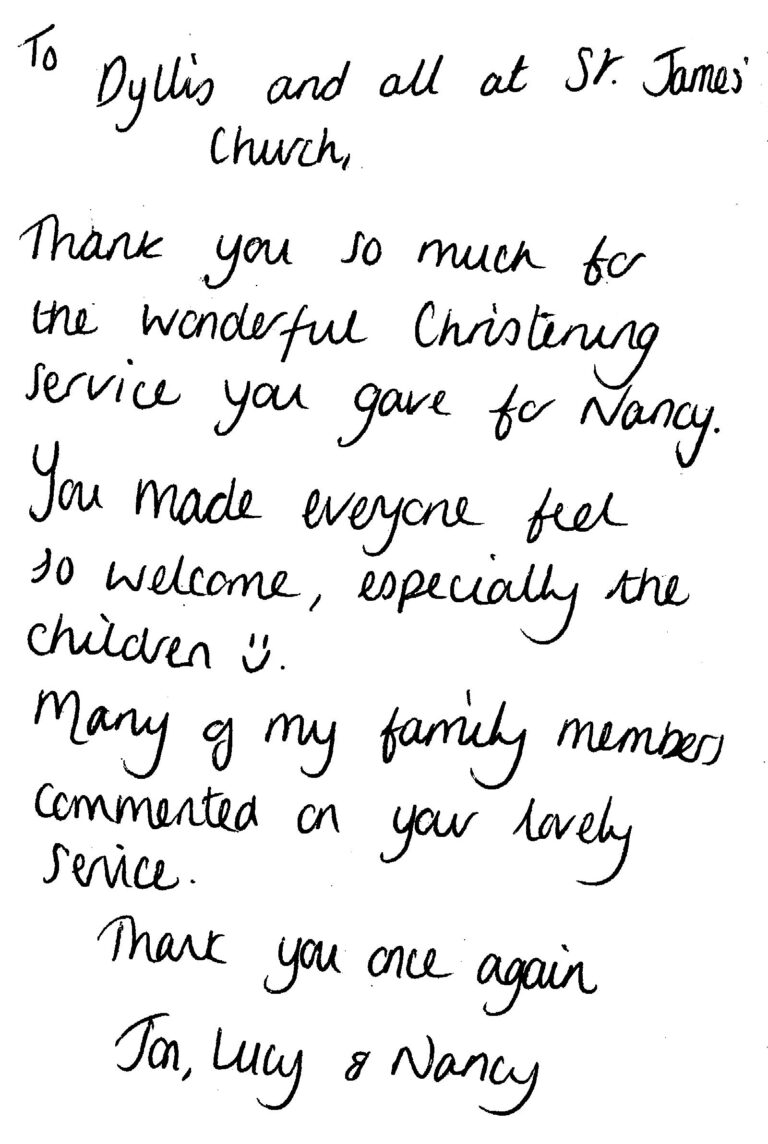 To
Dyllis and all at St. James'
Church,
Thank you so much for
the wonderful Christening
service you gave for Nancy.
You made everyone feel
so welcome, especially the
children ü.
Many of my family members
commented on your lovely
service.
Thank you once again
Jon, Lucy & Nancy